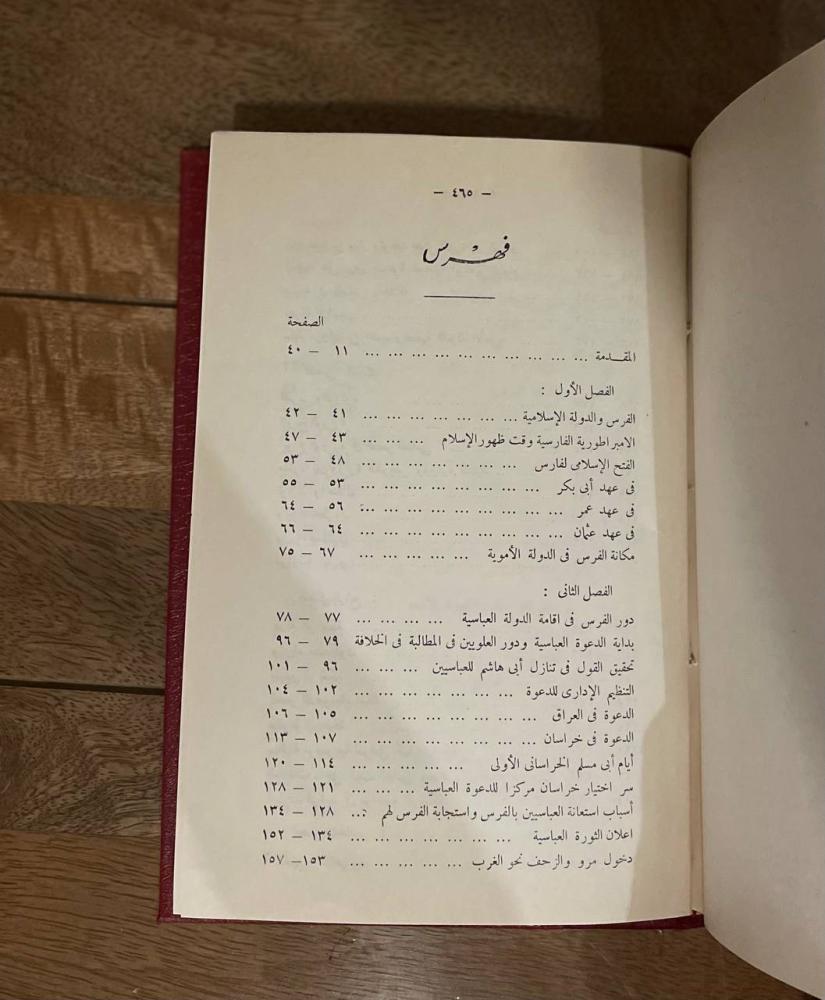 — ٤٦٥ —
فهرس
الصفحة
المقدمة ... ... ... ... ... ... ... ... ... ... ١١ — ٤٠
الفصل الأول :
الفرس والدولة الإسلامية ... ... ... ... ... ... ... ٤١ — ٤٢
الامبراطورية الفارسية وقت ظهور الإسلام ... ... ... ٤٣ — ٤٧
الفتح الإسلامى لفارس ... ... ... ... ... ... ... ٤٨ — ٥٣
فى عهد أبى بكر ... ... ... ... ... ... ... ... ٥٣ — ٥٥
فى عهد عمر ... ... ... ... ... ... ... ... ... ٥٦ — ٦٤
فى عهد عثمان ... ... ... ... ... ... ... ... ٦٤ — ٦٦
مكانة الفرس فى الدولة الأموية ... ... ... ... ... ٦٧ — ٧٥
الفصل الثانى :
دور الفرس فى اقامة الدولة العباسية ... ... ... ... ٧٧ — ٧٨
بداية الدعوة العباسية ودور العلويين فى المطالبة فى الخلافة ٧٩ — ٩٦
تحقيق القول فى تنازل أبى هاشم للعباسيين ... ... ... ٩٦ — ١٠١
التنظيم الإدارى للدعوة ... ... ... ... ... ... ... ١٠٢ — ١٠٤
الدعوة فى العراق ... ... ... ... ... ... ... ... ١٠٥ — ١٠٦
الدعوة فى خراسان ... ... ... ... ... ... ... ... ١٠٧ — ١١٣
أيام أبى مسلم الخراسانى الأولى ... ... ... ... ... ١١٤ — ١٢٠
سر اختيار خراسان مركزا للدعوة العباسية ... ... ... ١٢١ — ١٢٨
أسباب استعانة العباسيين بالفرس واستجابة الفرس لهم ... ١٢٨ — ١٣٤
اعلان الثورة العباسية ... ... ... ... ... ... ... ١٣٤ — ١٥٢
دخول مرو والزحف نحو الغرب ... ... ... ... ... ١٥٣ — ١٥٧